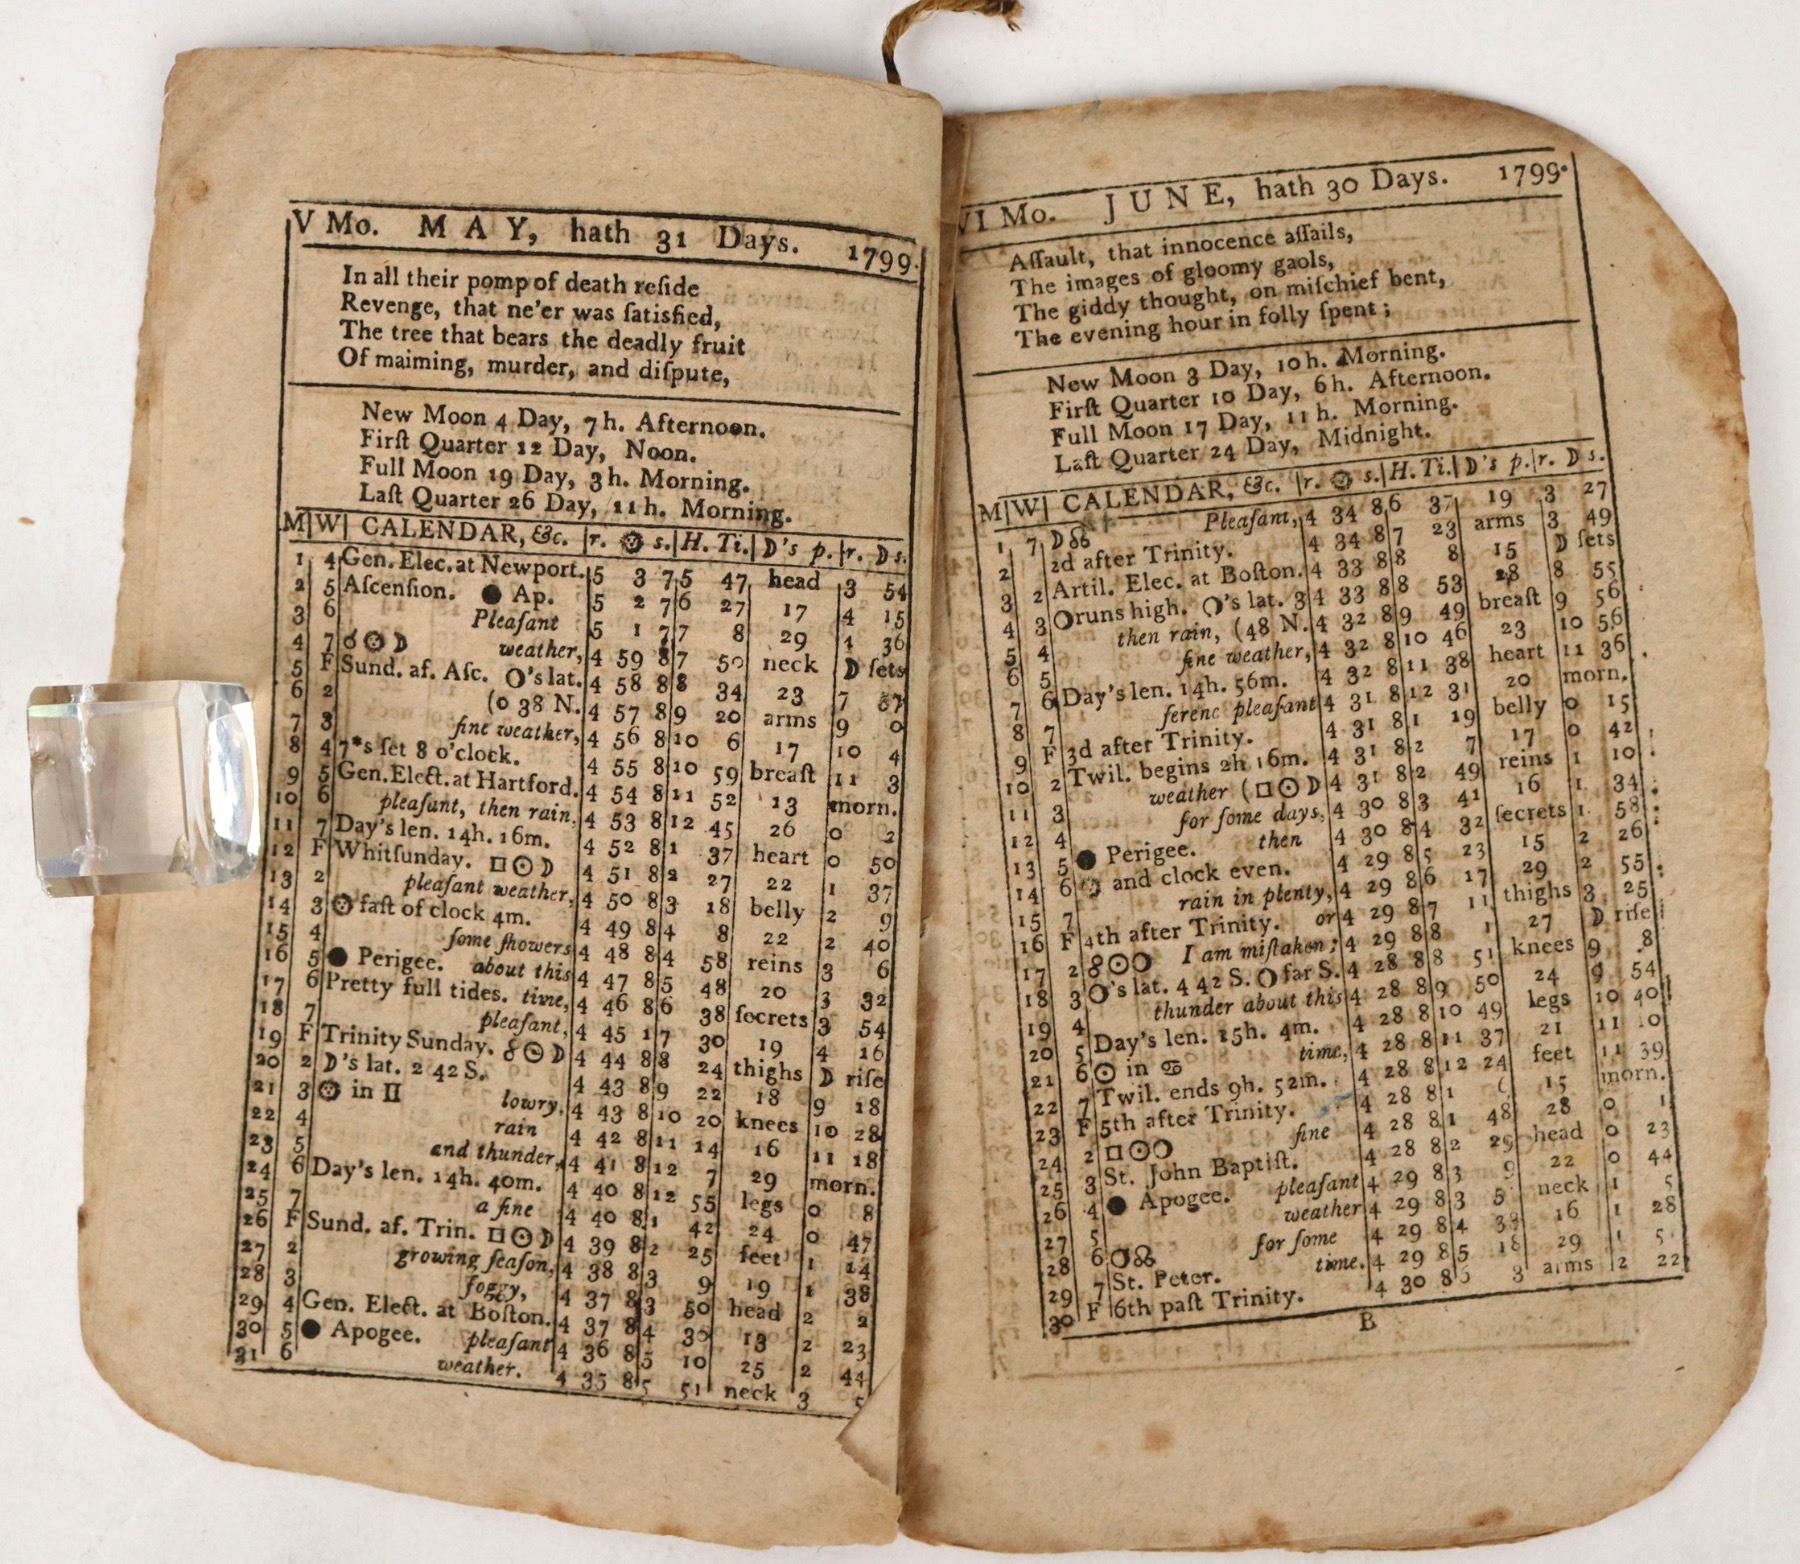 V Mo. MAY, hath 31 Days. 1799.
In all their pomp of death reſide
Revenge, that ne'er was ſatisfied,
The tree that bears the deadly fruit
Of maiming, murder, and diſpute,
New Moon 4 Day, 7h. Afternoon.
Firſt Quarter 12 Day, Noon.
Full Moon 19 Day, 3h. Morning.
Laſt Quarter 26 Day, 11h. Morning.
M W CALENDAR, &c. r. ☉ s. H. Ti. ☽'s p. r. ☽ s.
1 4 Gen. Elec. at Newport. 5 3 7 5 47 head 3 54
2 5 Aſcenſion. ● Ap. 5 2 7 6 27 17 4 15
3 6 Pleaſant 5 1 7 7 8 29 4 36
4 7 ☌☉☽ weather, 4 59 8 7 50 neck ☽ ſets
5 F Sund. af. Aſc. O's lat. 4 58 8 8 34 23 7
6 2 (0 38 N. 4 57 8 9 20 arms 9 0
7 3 fine weather, 4 56 8 10 6 17 10 4
8 4 7*s ſet 8 o'clock. 4 55 8 10 59 breaſt 11 3
9 5 Gen. Elect. at Hartford. 4 54 8 11 52 13 morn.
10 6 pleaſant, then rain, 4 53 8 12 45 26 0 2
11 7 Day's len. 14h. 16m. 4 52 8 1 37 heart 0 50
12 F Whitſunday. □☉☽ 4 51 8 2 27 22 1 37
13 2 pleaſant weather, 4 50 8 3 18 belly 2 9
14 3 ☉ faſt of clock 4m. 4 49 8 4 8 22 2 40
15 4 ſome ſhowers 4 48 8 4 58 reins 3 6
16 5 ● Perigee. about this 4 47 8 5 48 20 3 32
17 6 Pretty full tides. time, 4 46 8 6 38 ſecrets 3 54
18 7 pleaſant, 4 45 1 7 30 19 4 16
19 F Trinity Sunday. ☍☉☽ 4 44 8 8 24 thighs ☽ riſe
20 2 ☽'s lat. 2 42 S. 4 43 8 9 22 18 9 18
21 3 ☉ in II lowry, 4 43 8 10 20 knees 10 28
22 4 rain 4 42 8 11 14 16 11 18
23 5 and thunder, 4 41 8 12 7 29 morn.
24 6 Day's len. 14h. 40m. 4 40 8 12 55 legs 0 8
25 7 a fine 4 40 8 1 42 24 0 47
26 F Sund. af. Trin. □☉☽ 4 39 8 2 25 feet 1 14
27 2 growing ſeaſon, 4 38 8 3 9 19 1 38
28 3 foggy, 4 37 8 3 50 head 2 2
29 4 Gen. Elect. at Boſton. 4 37 8 4 30 13 2 23
30 5 ● Apogee. pleaſant 4 36 8 5 10 25 2 44
31 6 weather. 4 35 8 5 51 neck 3 5
VI Mo. JUNE, hath 30 Days. 1799.
Aſſault, that innocence aſſails,
The images of gloomy gaols,
The giddy thought, on miſchief bent,
The evening hour in folly ſpent;
New Moon 3 Day, 10h. Morning.
Firſt Quarter 10 Day, 6h. Afternoon.
Full Moon 17 Day, 11h. Morning.
Laſt Quarter 24 Day, Midnight.
M W CALENDAR, &c. r. ☉ s. H. Ti. ☽'s p. r. ☽ s.
1 7 ☽☊ Pleaſant, 4 34 8 6 37 19 3 27
2 2d after Trinity. 4 34 8 7 23 arms 3 49
3 2 Artil. Elec. at Boſton. 4 33 8 8 8 15 ☽ ſets
4 3 O runs high. O's lat. 3 4 33 8 8 53 28 8 55
5 4 then rain, (48 N. 4 32 8 9 49 breaſt 9 56
6 5 fine weather, 4 32 8 10 46 23 10 56
7 6 Day's len. 14h. 56m. 4 32 8 11 38 heart 11 36
8 7 ferenc pleaſant 4 31 8 12 31 20 morn.
9 F 3d after Trinity. 4 31 8 1 19 belly 0 15
10 2 Twil. begins 2h 16m. 4 31 8 2 7 17 0 42
11 3 weather (□☉☽ 4 31 8 2 49 reins 1 10
12 4 for ſome days, 4 30 8 3 41 16 1 34
13 5 ● Perigee. then 4 30 8 4 32 ſecrets 1 58
14 6 and clock even. 4 29 8 5 23 15 2 26
15 7 rain in plenty, 4 29 8 6 17 29 2 55
16 F 4th after Trinity. or 4 29 8 7 11 thighs 3 25
17 2 ☍☉O I am miſtaken; 4 29 8 8 1 27 ☽ riſe
18 3 O's lat. 4 42 S. O far S. 4 28 8 8 51 knees 9 8
19 4 thunder about this 4 28 8 9 50 24 9 54
20 5 Day's len. 15h. 4m. 4 28 8 10 49 legs 10 40
21 6 ☉ in ♋ time, 4 28 8 11 37 21 11 10
22 7 Twil. ends 9h. 52m. 4 28 8 12 24 feet 11 39
23 F 5th after Trinity. 4 28 8 1 6 15 morn.
24 2 □☉O fine 4 28 8 1 48 28 0 1
25 3 St. John Baptiſt. 4 28 8 2 29 head 0 23
26 4 ● Apogee. pleaſant 4 29 8 3 9 22 0 44
27 5 weather 4 29 8 3 neck 1 5
28 6 O☊ for ſome 4 29 8 4 16 1 28
29 7 St. Peter. time. 4 29 8 5 18 29 1
30 F 6th paſt Trinity. 4 30 8 3 arms 2 22
B